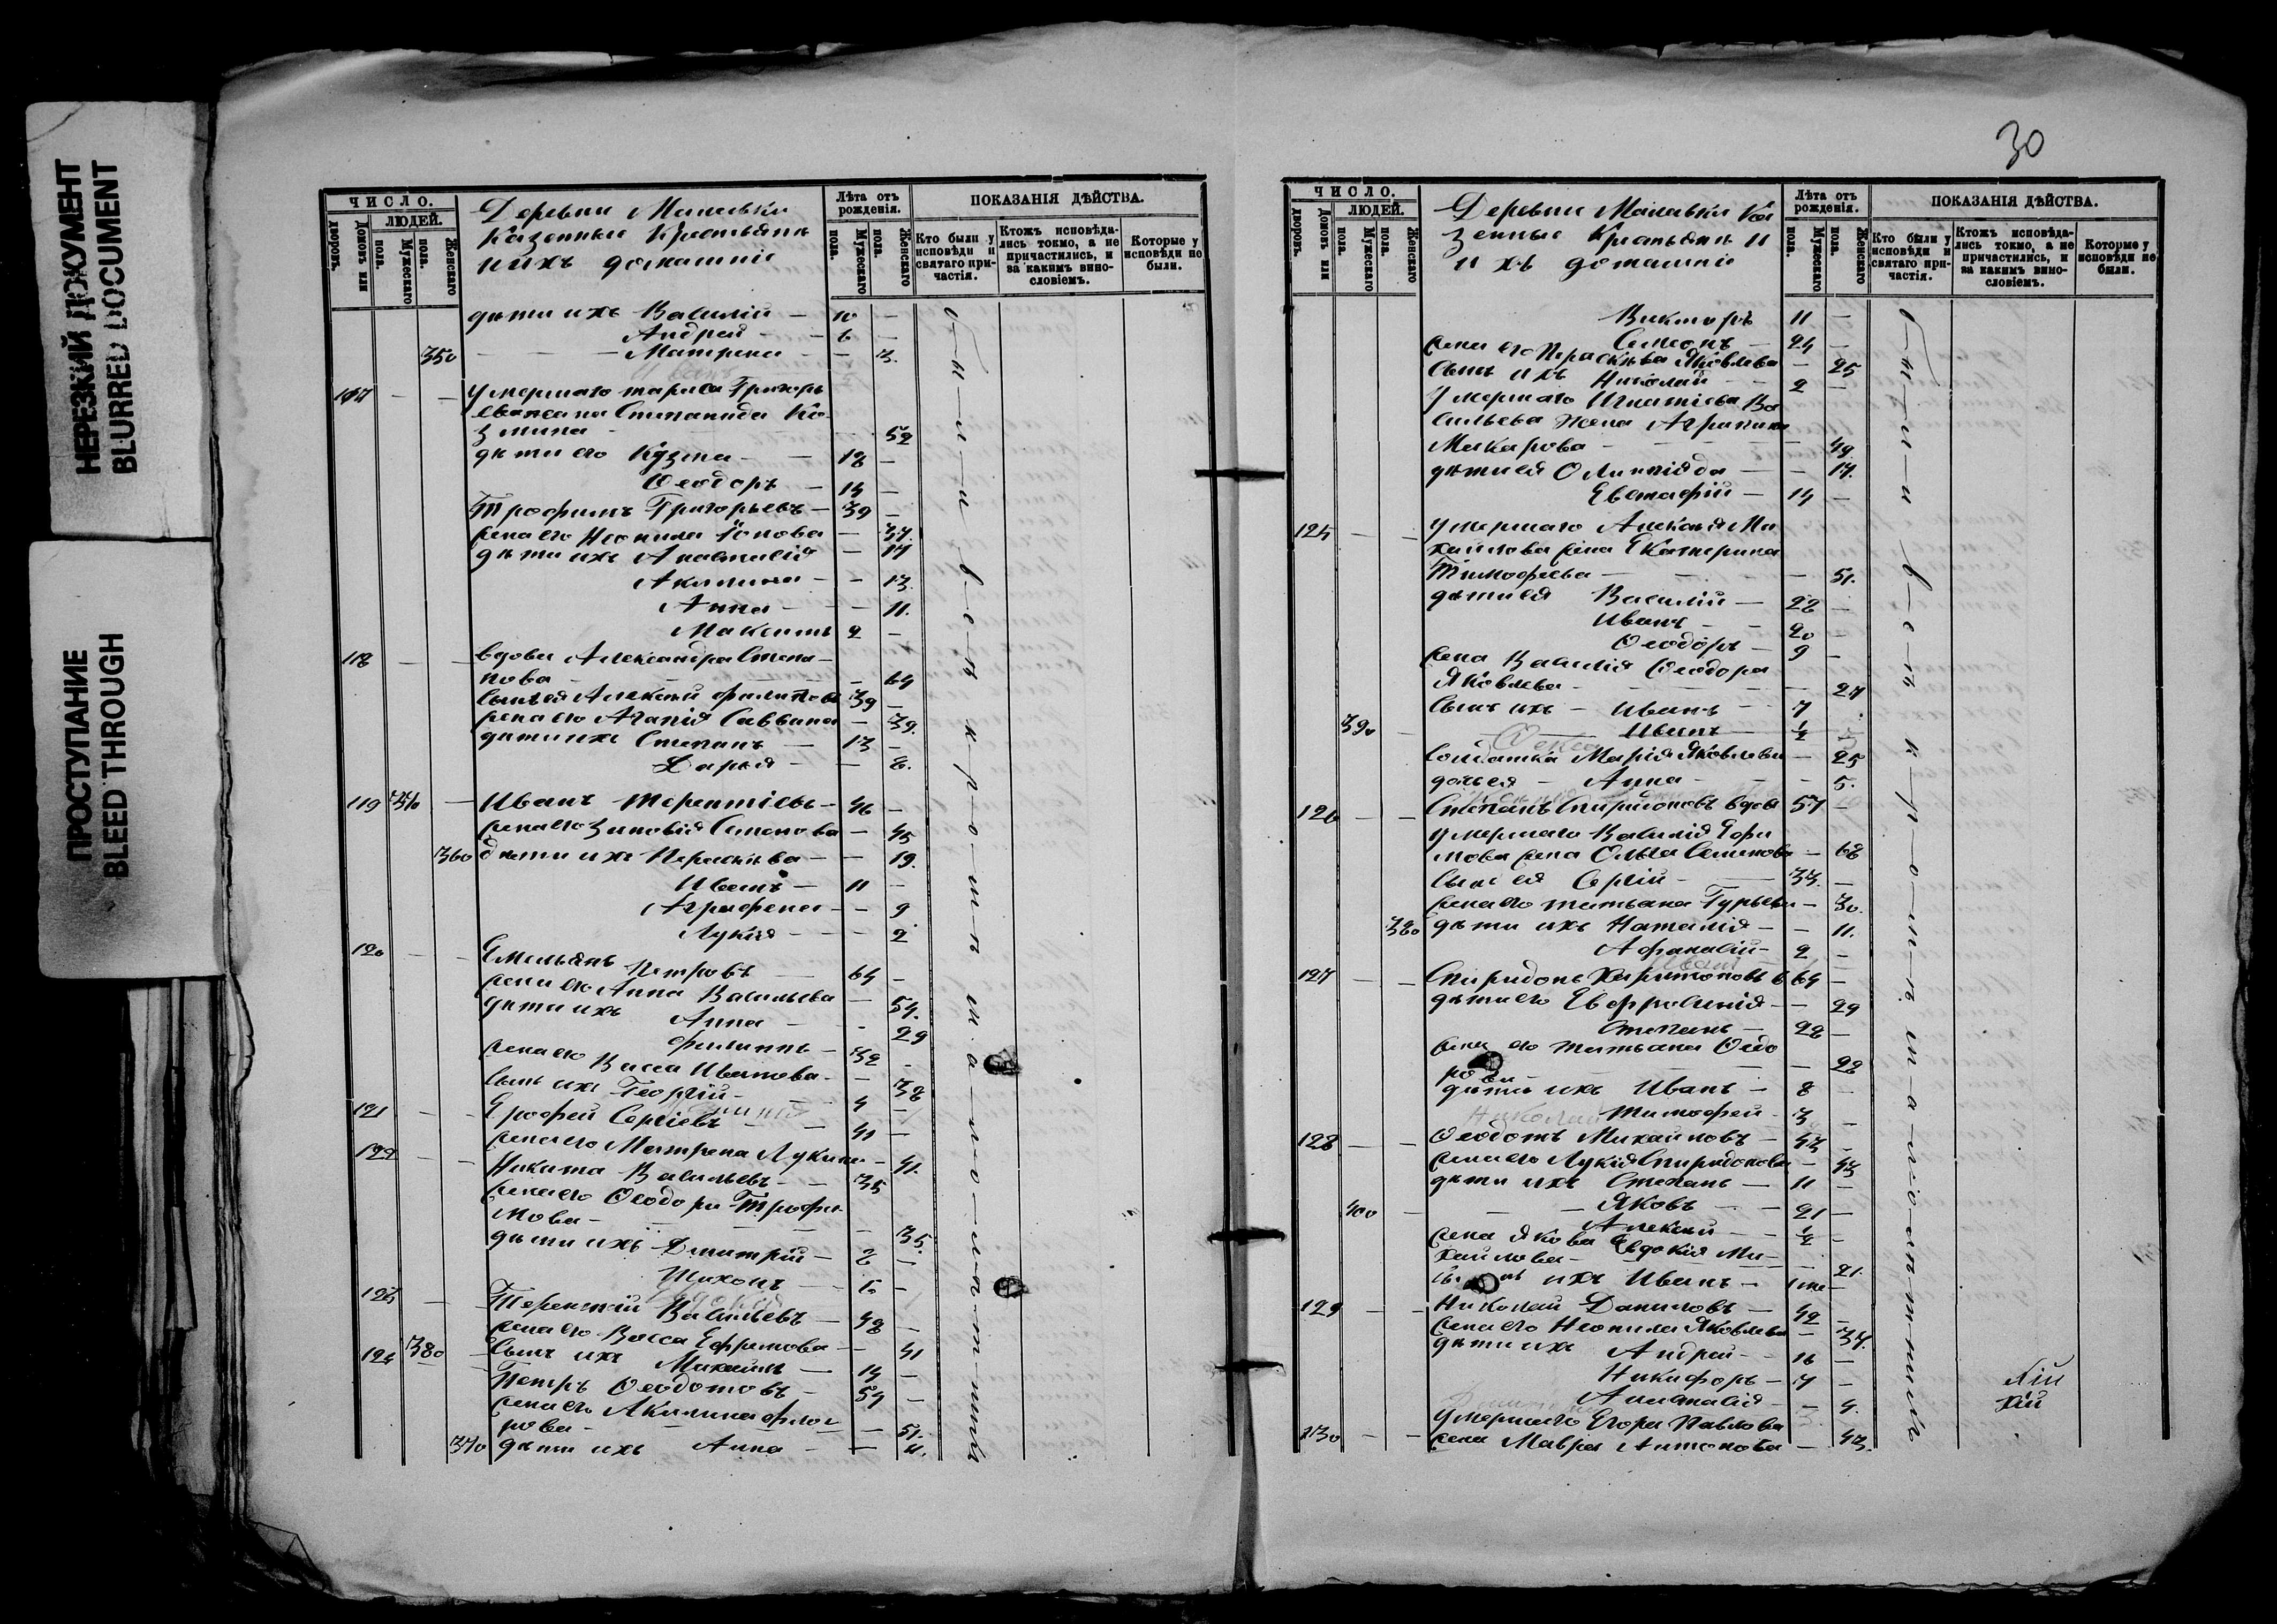 НЕРЕЗКИЙ ДОКУМЕНТ
BLURRED DOCUMENT
ПРОСТУПАНИЕ
BLEED THROUGH
ЧИСЛО.
ЛЮДЕЙ.
Домовъ или дворовъ.
Мужескаго пола.
Женскаго пола.
Деревни
Казенные Крестьяне
и ихъ домашніе
Лѣта отъ рожденія.
Мужескаго пола.
Женскаго пола.
ПОКАЗАНІЯ ДѢЙСТВА.
Кто были у исповѣди и святаго причастія.
Ктожъ исповѣдались токмо, а не причастились, и за какимъ винословіемъ.
Которые у исповѣди не были.
дѣти ихъ Василій — 10 —
Андрей — 6 —
350 — Матрена — 3.
117 — — умершаго Григорь
ева жена Степанида Ко
змина — 52
дѣти его Кузма — 18 —
Ѳеодоръ — 14 —
Трофимъ Григорьевъ — 39 —
жена его Неонила — 37.
дѣти ихъ Анастасія — 17
Акилина — 13.
Анна — 11.
Максимъ 2 —
118 — — вдова Александра Степа-
нова — 64
сынъ ея Алексѣй Филиповъ 39 —
жена его Агапія Саввина — 39.
дѣти ихъ Степанъ — 13 —
Дарья — 8.
119 370 — Иванъ Терентіевъ — 46 —
жена его Зиновія Семенова — 45
360 дѣти ихъ Параскѣва — 19.
Иванъ — 11 —
Аграфена — 9
Лукія — 2
120 — — Емельянъ Петровъ — 64 —
жена его Анна Васильева — 54.
дѣти ихъ Анна — 29
Филиппъ — 32 —
жена его Васса Иванова — 32
сынъ ихъ Георгій — 4 —
121 — — Ерофей Сергіевъ — 41 —
жена его Матрена Лукина — 41.
122 — — Никита Васильевъ — 35
жена его Ѳеодора Трофи
мова — 35.
дѣти ихъ Дмитрій — 2 —
Тихонъ —
123 — Терентій Васильевъ — 48 —
жена его Васса Ефримова — 41
380 сынъ ихъ Михаилъ — 14 —
124 Петръ Ѳеодотовъ — 54 —
жена его Акилина Фло
рова — 51.
370 дѣти ихъ Анна — 11.
были всѣ кромѣ малолѣтнихъ
30
ЧИСЛО.
ЛЮДЕЙ.
Домовъ или дворовъ.
Мужескаго пола.
Женскаго пола.
Деревни Ка
зенные Крестьяне и
ихъ домашніе
Лѣта отъ рожденія.
Мужескаго пола.
Женскаго пола.
ПОКАЗАНІЯ ДѢЙСТВА.
Кто были у исповѣди и святаго причастія.
Ктожъ исповѣдались токмо, а не причастились, и за какимъ винословіемъ.
Которые у исповѣди не были.
Викторъ 11 —
Симеонъ — 24 —
жена его Параскѣва Яковлева — 25
сынъ ихъ Николай — 2 —
умершаго Игнатіева Ва
сильева жена Агрипина
Макарова — 49.
дѣти ея Олимпіада — 17.
Евстафій — 14 —
125 — — умершаго Алексѣя Ми
хаилова жена Екатерина
Тимофеева — 51.
дѣти ея Василій — 22 —
Иванъ — 20 —
Ѳеодоръ — 9 —
жена Василія Ѳеодора
Яковлева — 27
сынъ ихъ — Иванъ — 7
390 — Иванъ — ½
солдатка Марія Яковлева — 25
дочь ея — Анна — 5.
126 — — Степанъ Спиридоновъ вдовъ 57 —
умершаго Василія Ефи
мова жена Ольга Семенова — 62
сынъ ея Сергій — 33. —
жена его Татьяна Гурьева — 30.
380 дѣти ихъ Наталія — 11.
Афанасій — 2 —
127 — — Спиридонъ Харитоновъ в 64 —
дѣти его Евфросинія — 29
Степанъ — 22 —
жена его Татьяна Ѳедо
рова — 22
дѣти ихъ Иванъ — 8 —
Тимофей — 3 —
128 — — Ѳеодотъ Михаиловъ — 43 —
жена его Лукія Спиридонова — 43
дѣти ихъ Степанъ — 11 —
400 — Яковъ — 21 —
Алексѣй — ½ —
жена Якова Евдокія Ми-
хаилова — 21.
сынъ ихъ Иванъ —
129 — — Николай Даниловъ — 42 —
жена его Неонила Яковлева — 37.
дѣти ихъ Андрей — 16 —
Никифоръ — 7 —
Анастасія — 4.
130 — — умершаго Егора Павлова
жена Мавра Антонова — 43.
были всѣ кромѣ малолѣтнихъ